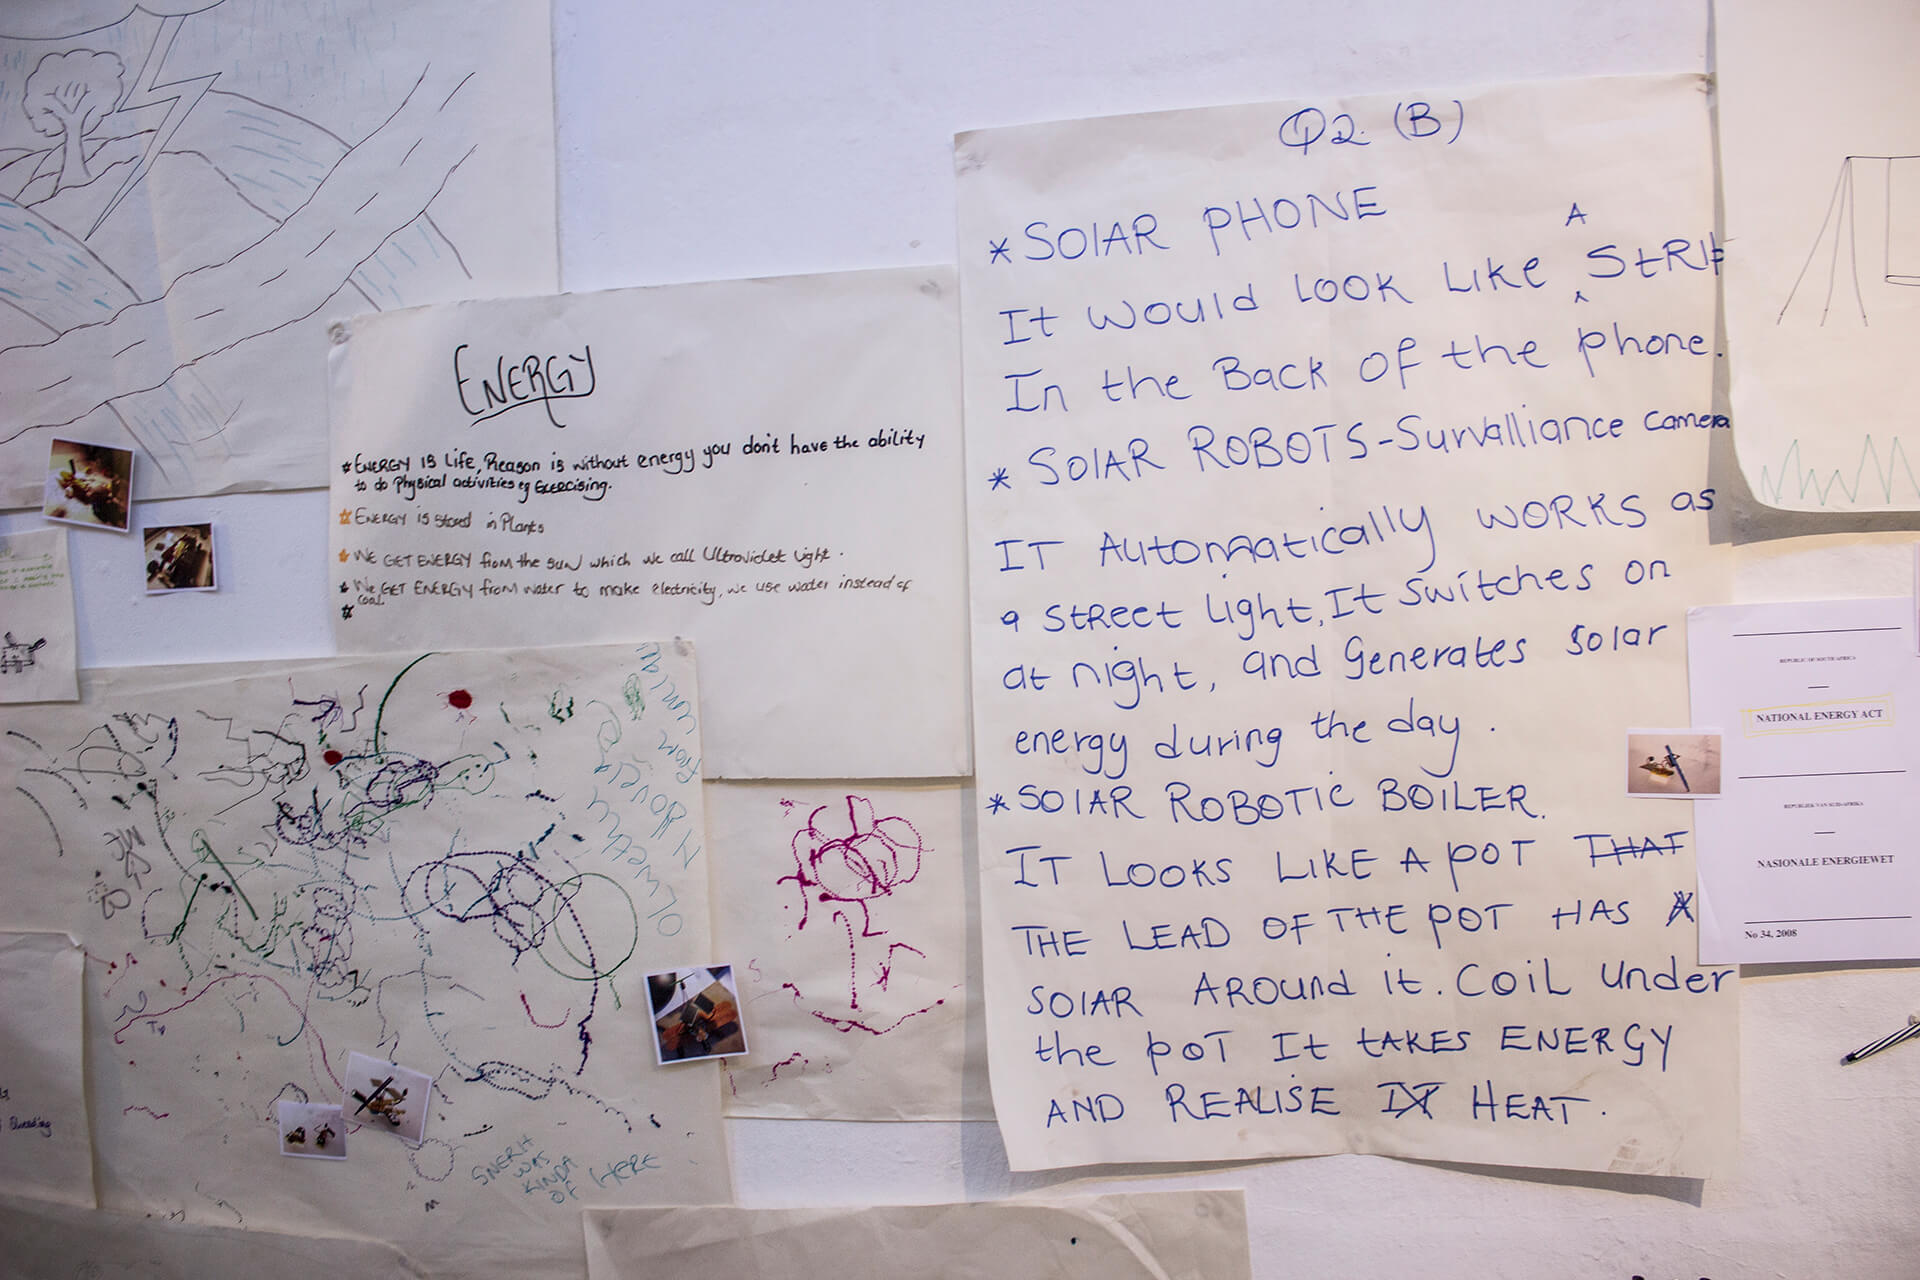 ENERGY
* ENERGY IS Life, Reason is without energy you don't have the ability
to do Physical activities eg Exercising.
ENERGY is stored in Plants
WE GET ENERGY from the sun which we call Ultraviolet Light.
We GET ENERGY from water to make electricity, we use water instead of
coal.
Q2. (B)
* SOlAR PHONE
A
It would look like STRIP
In the Back of the phone.
* SOlAR ROBOTS-Survalliance camera
IT Automatically WORKS as
a street light. It switches on
at night, and Generates solar
energy during the day.
* SOlAR ROBOTIC BOILER.
IT LOOKS LIKE A POT THAT
THE LEAD OF THE POT HAS A
SOlAR AROUND it. COIL under
the POT It TAKES ENERGY
AND REALISE IT HEAT.
REPUBLIC OF SOUTH AFRICA
NATIONAL ENERGY ACT
REPUBLIEK VAN SUID-AFRIKA
NASIONALE ENERGIEWET
No 34, 2008
SNERH
WAS
KINDA
OF HERE